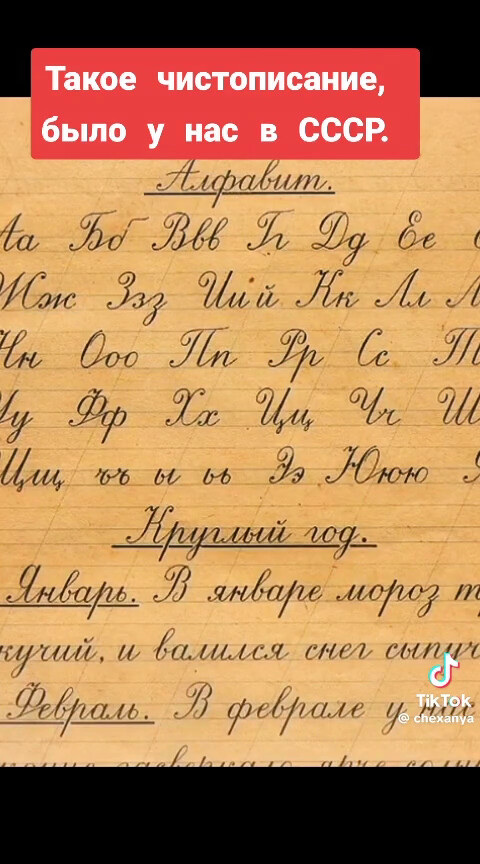 Такое чистописание,
было у нас в СССР.
Алфавит.
Аа Бб Ввв Гг Дд Ее
Жж Ззз Иий Кк Лл
Нн Ооо Пп Рр Сс Т
Уу Фф Хх Цц Чч Ш
Щщ ъъ ы ьь Ээ Ююю
Круглый год.
Январь. В январе мороз т
кучий, и валился снег сыпуч
Февраль. В феврале у
засверкало ярче
TikTok
@ chexanya